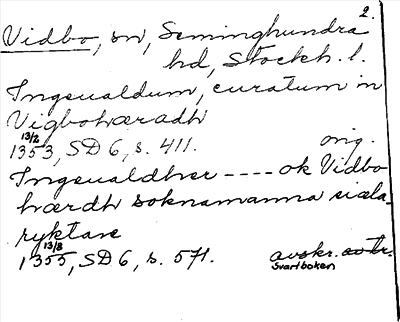 2.
Vidbo, sn, Seminghundra
hd, Stockh. l.
Ingeualdum, curatum in
Vigbohæradh
13/2
1353, SD 6, s. 411. orig.
Ingeualdher ---- ok Vidbo
hærdh soknamanna siæla
ryktare
13/8
1355, SD 6, s. 571. avskr. avtr.
Svartboken